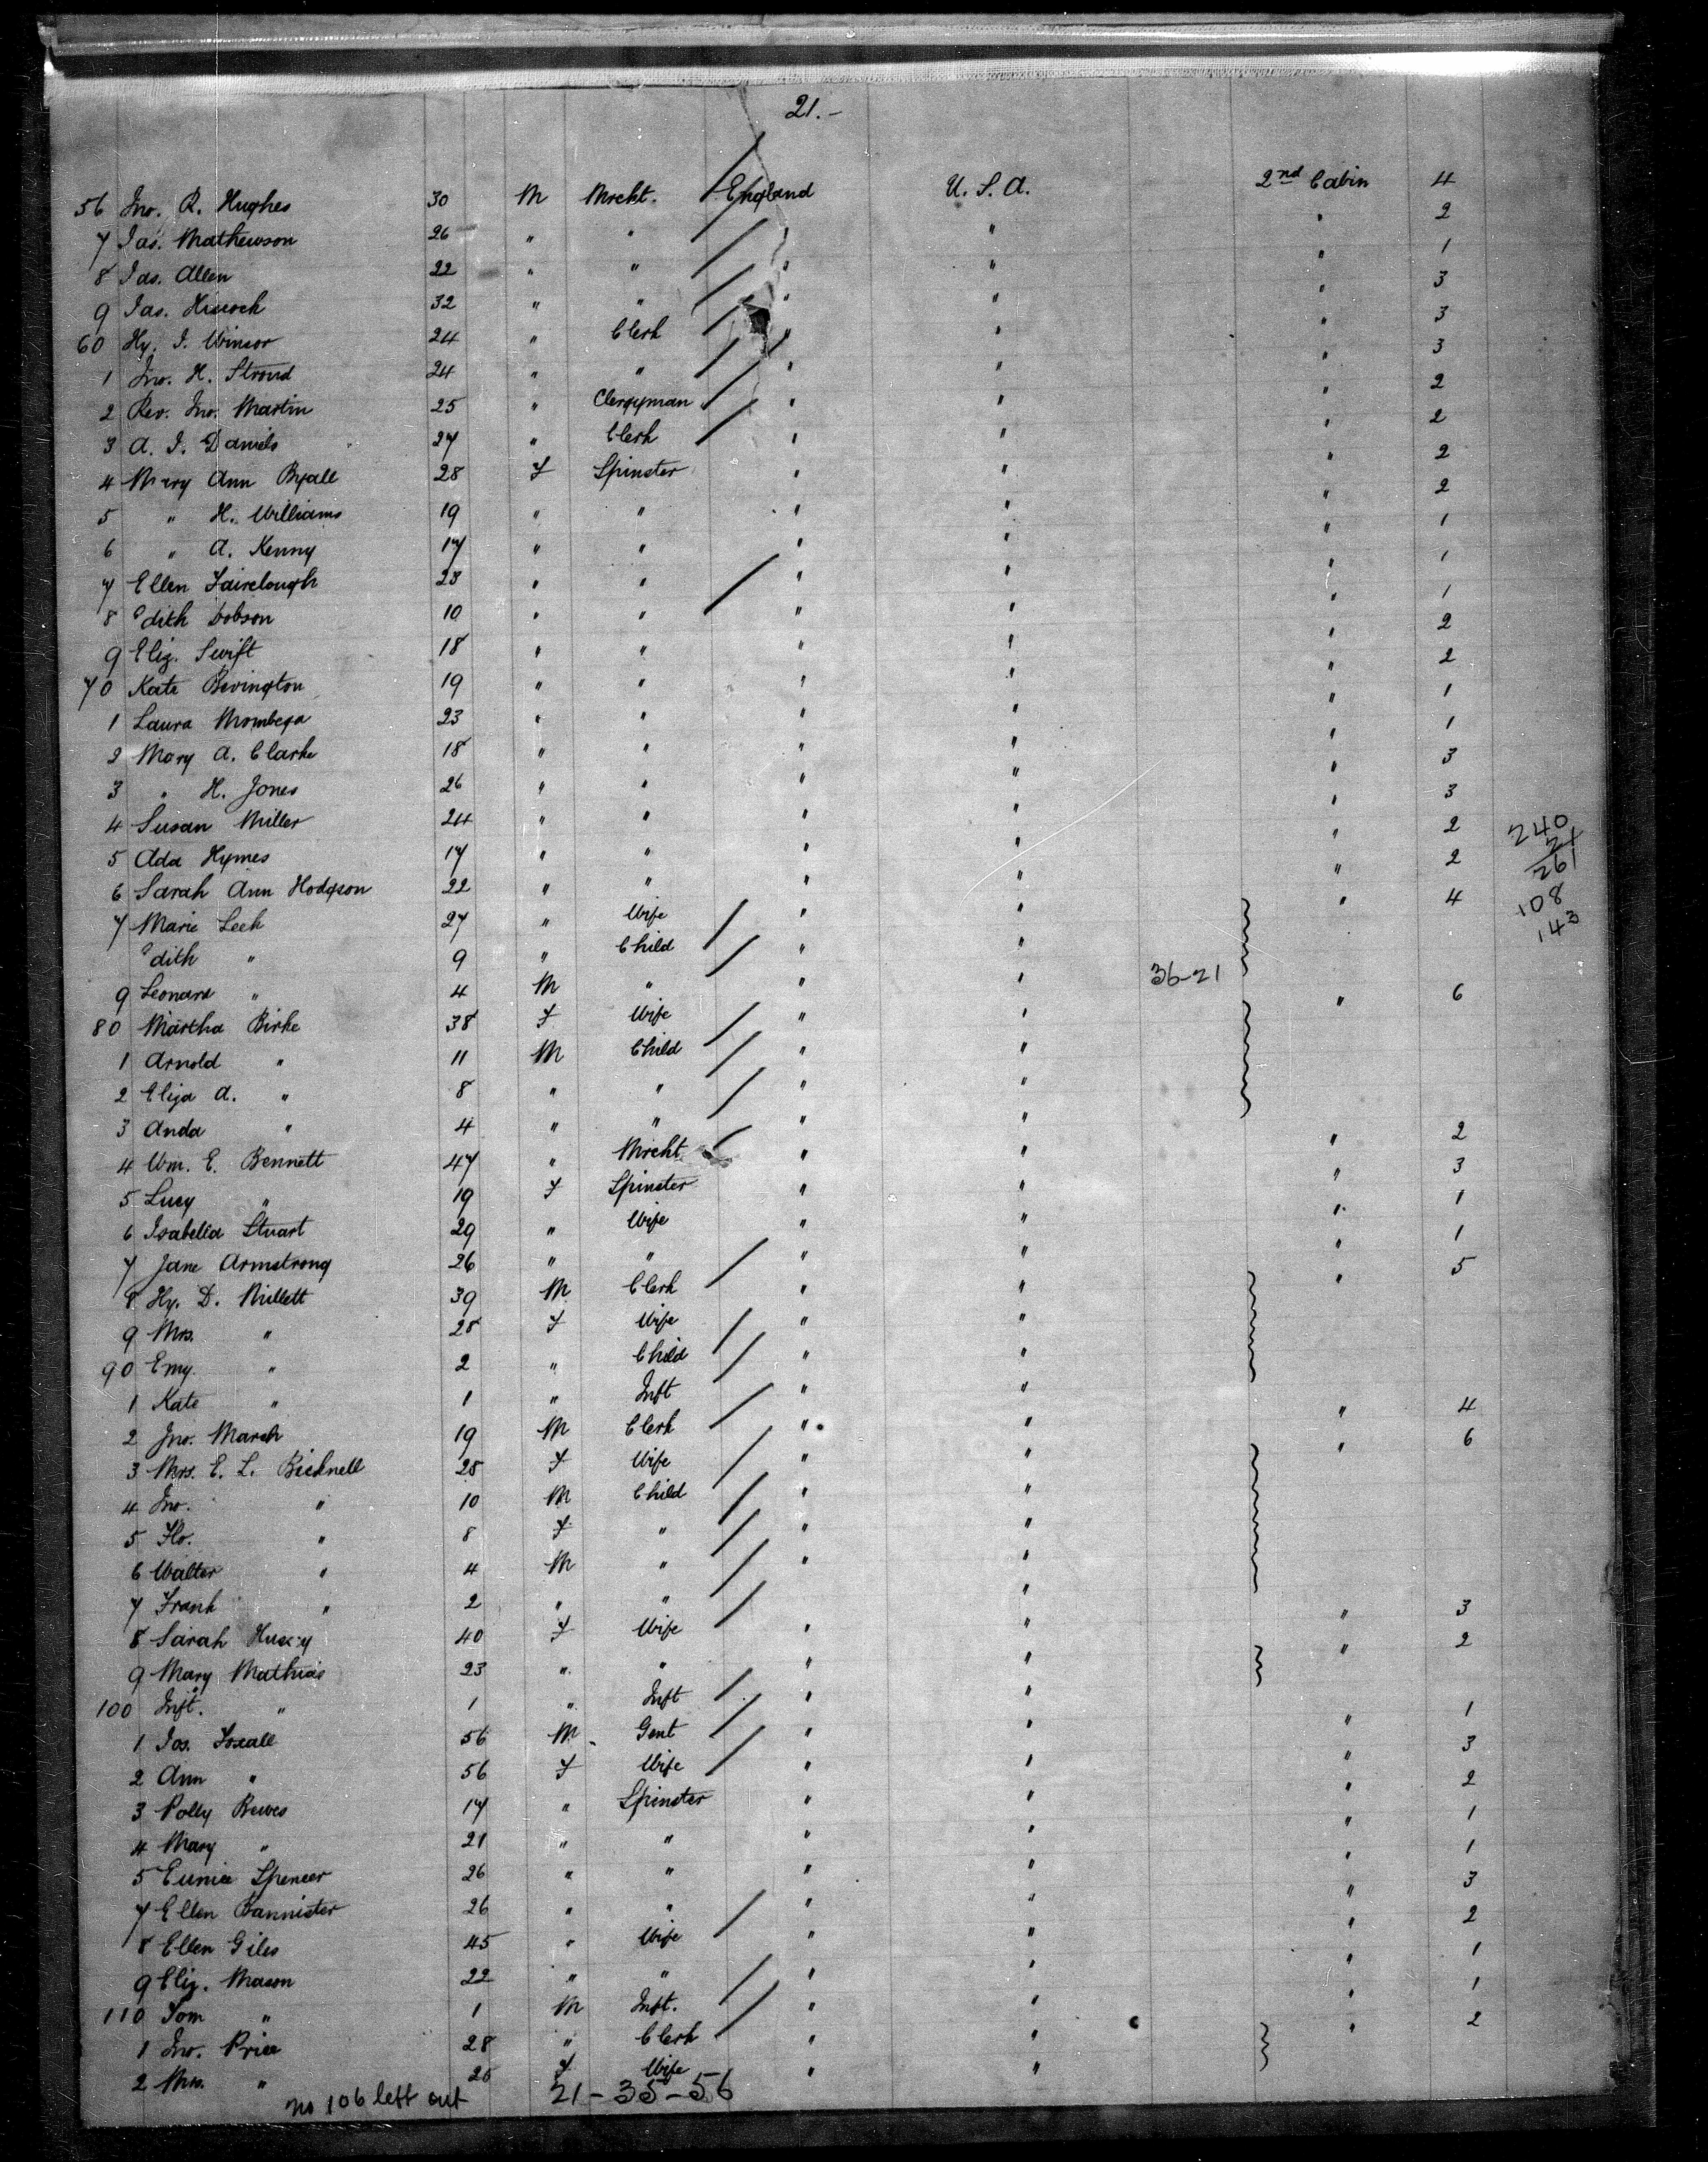 21.-
56 Jno. R. Hughes 30 M Mrcht. England U. S. A. 2nd Cabin 4
7 Jas. Mathewson 26 " " " " " 2
8 Jas. Allen 22 " " " " " 1
9 Jas. Hiscock 32 " " " " " 3
60 Hy. J. Winsor 24 " Clerk " " " 3
1 Jno. H. Stroud 24 " " " " " 3
2 Rev. Jno. Martin 25 " Clergyman " " " 2
3 A. J. Daniels 27 " Clerk " " " 2
4 Mary Ann Byall 28 F Spinster " " " 2
5 " H. Williams 19 " " " " " 2
6 " A. Kenny 17 " " " " " 1
7 Ellen Fairclough 28 " " " " " 1
8 Edith Dobson 10 " " " " " 1
9 Eliz. Swift 18 " " " " " 2
70 Kate Bevington 19 " " " " " 2
1 Laura Mombega 23 " " " " " 1
2 Mary A. Clarke 18 " " " " " 1
3 " H. Jones 26 " " " " " 3
4 Susan Miller 24 " " " " " 3
5 Ada Hymes 17 " " " " " 2
6 Sarah Ann Hodgson 22 " " " " " 2
7 Marie Leek 27 " Wife " " " 4
Edith " 9 " Child " "
9 Leonard " 4 M " " "
80 Martha Birke 38 F Wife " " " 6
1 Arnold " 11 M Child " "
2 Eliza A. " 8 " " " "
3 Anda " 4 " " " "
4 Wm. E. Bennett 47 " Mrcht " " " 2
5 Lucy " 19 F Spinster " " " 3
6 Isabella Stuart 29 " Wife " " " 1
7 Jane Armstrong 26 " " " " " 1
8 Hy. D. Millett 39 M Clerk " " " 5
9 Mrs. " 28 F Wife " "
90 Emy. " 2 " Child " "
1 Kate " 1 " Inft " "
2 Jno. Marsh 19 M Clerk " " " 4
3 Mrs. E. L. Bicknell 28 F Wife " " " 6
4 Jno. " 10 M Child " "
5 Flo. " 8 F " " "
6 Walter " 4 M " " "
7 Frank " 2 " " "
8 Sarah 40 F Wife " " " 3
9 Mary Mathias 23 " " " " " 2
100 Inft. " 1 " Inft " "
1 Jos. Foxall 56 M Gent " " " 1
2 Ann " 56 F Wife " " " 3
3 Polly 17 " Spinster " " " 2
4 Mary " 21 " " " " " 1
5 Eunice Spencer 26 " " " " " 1
7 Ellen Bannister 26 " " " " " 3
8 Ellen Giles 45 " Wife " " " 2
9 Eliz. Mason 22 " " " " " 1
110 Tom " 1 M Inft. " " " 1
1 Jno. Price 28 " Clerk " " " 2
2 Mrs. " 25 F Wife " "
240
21
261
108
143
36-21
no 106 left out 21-35-56